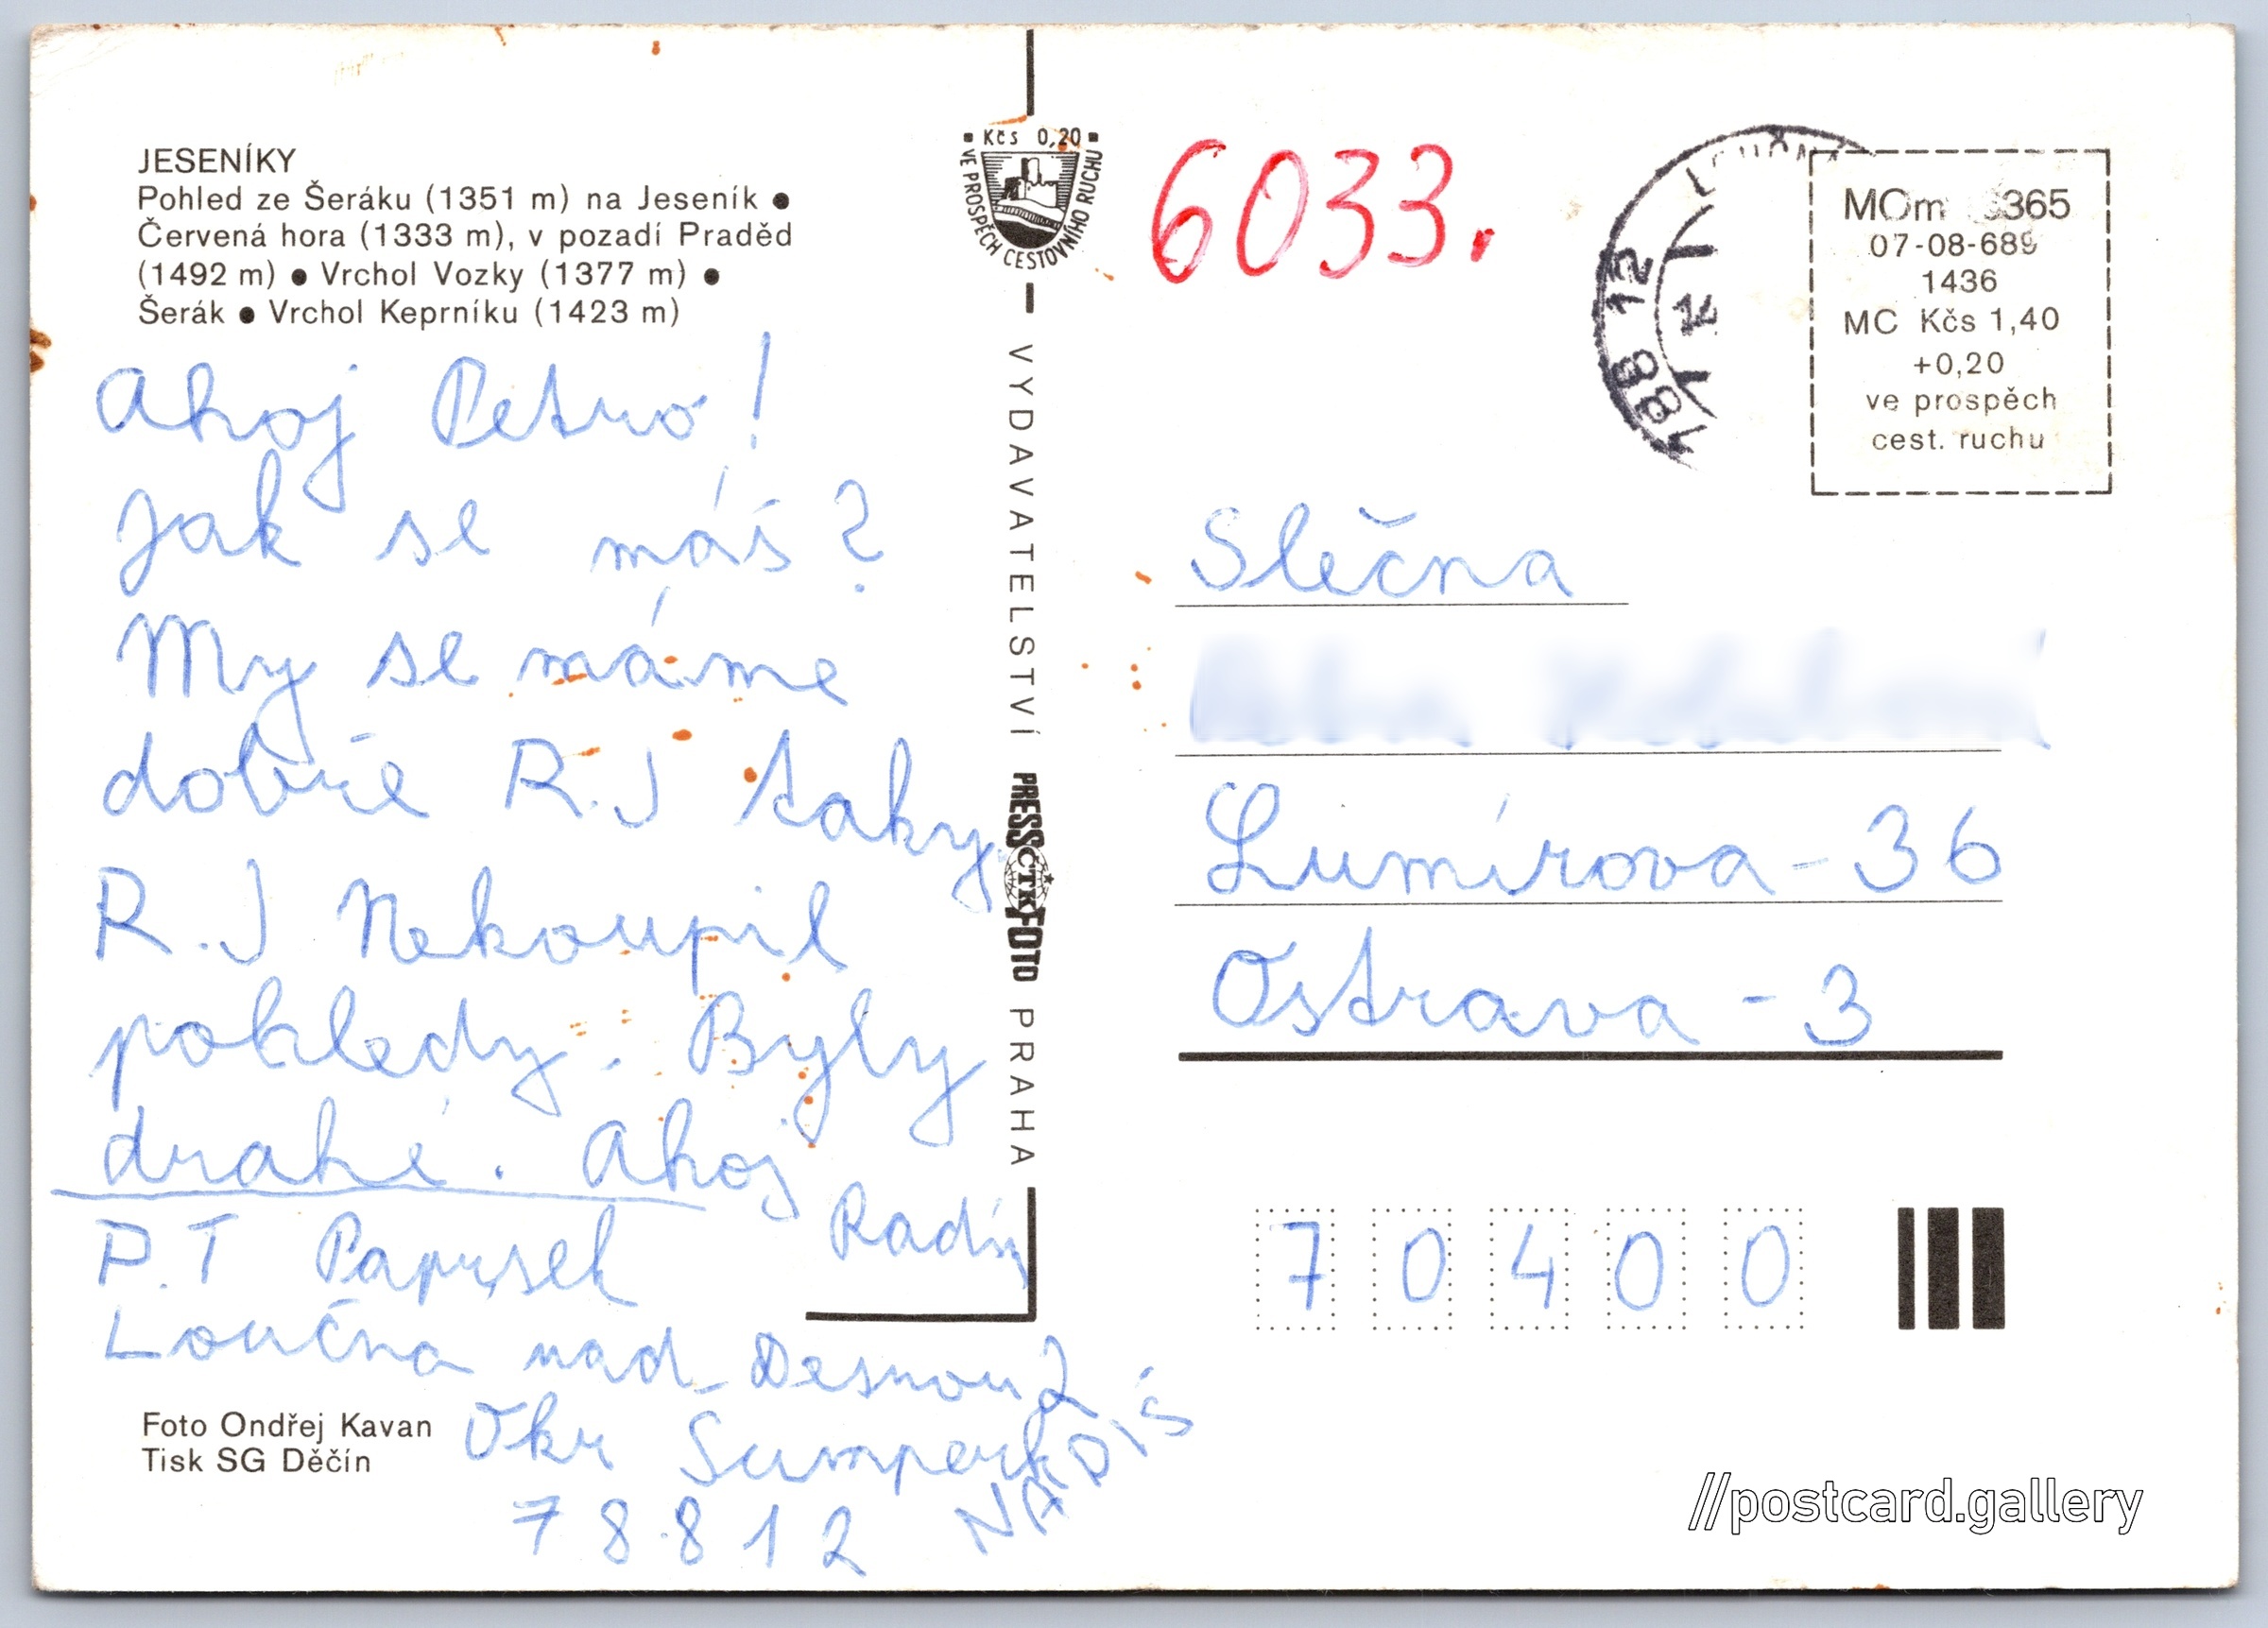 JESENÍKY
Pohled ze Šeráku (1351 m) na Jeseník ●
Červená hora (1333 m), v pozadí Praděd
(1492 m) ● Vrchol Vozky (1377 m) ●
Šerák ● Vrchol Keprníku (1423 m)
Ahoj Petro!
Jak se máš?
My se máme
dobře R.J taky.
R.J Nekoupil
pohledy. Byly
drahé. Ahoj
Radí
P.T
Loučna nad Desnou 2
Okr Sumperk
78812
Foto Ondřej Kavan
Tisk SG Děčín
Kčs 0,20
VE PROSPĚCH CESTOVNÍHO RUCHU
VYDAVATELSTVÍ PRESSFOTO PRAHA
ČTK
6033.
12
MOm 365
07-08-689
1436
MC Kčs 1,40
+0,20
ve prospěch
cest. ruchu
Slečna
Lumírova - 36
Ostrava - 3
70400
//postcard.gallery